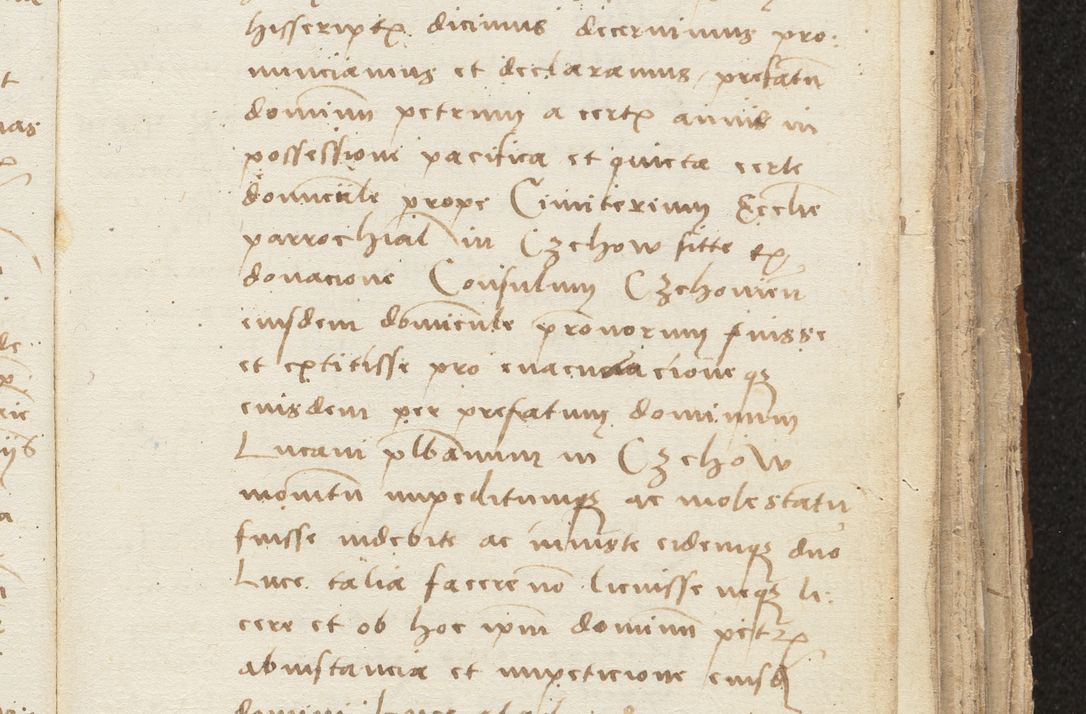 hisscriptꝭ dicimus decernimus pro:
nunciamus et declaramus, prefatū
dominū petrum a certꝭ annis in
possessione pacifica et quieta certe
domūcule prope Cimiterium Ecclie
parrochial in Czchow sitte ex
donacione Consulum Czchowien̄
eiusdem domūcule ꝓuisorum fuisse
et extitisse pro euacuacioneqꝫ
eiusdem per prefatum dominum
Lucam plbanum in Czchow
monitū impeditumqꝫ ac molestatū
fuisse indebite ac iniuste eidemqꝫ dno
Luce talia facere nō licuisse neqꝫ li:
cere et ob hoc ipm̄ dominū petrꝭ
ab instancia et impeticione eiusd
domini Luce